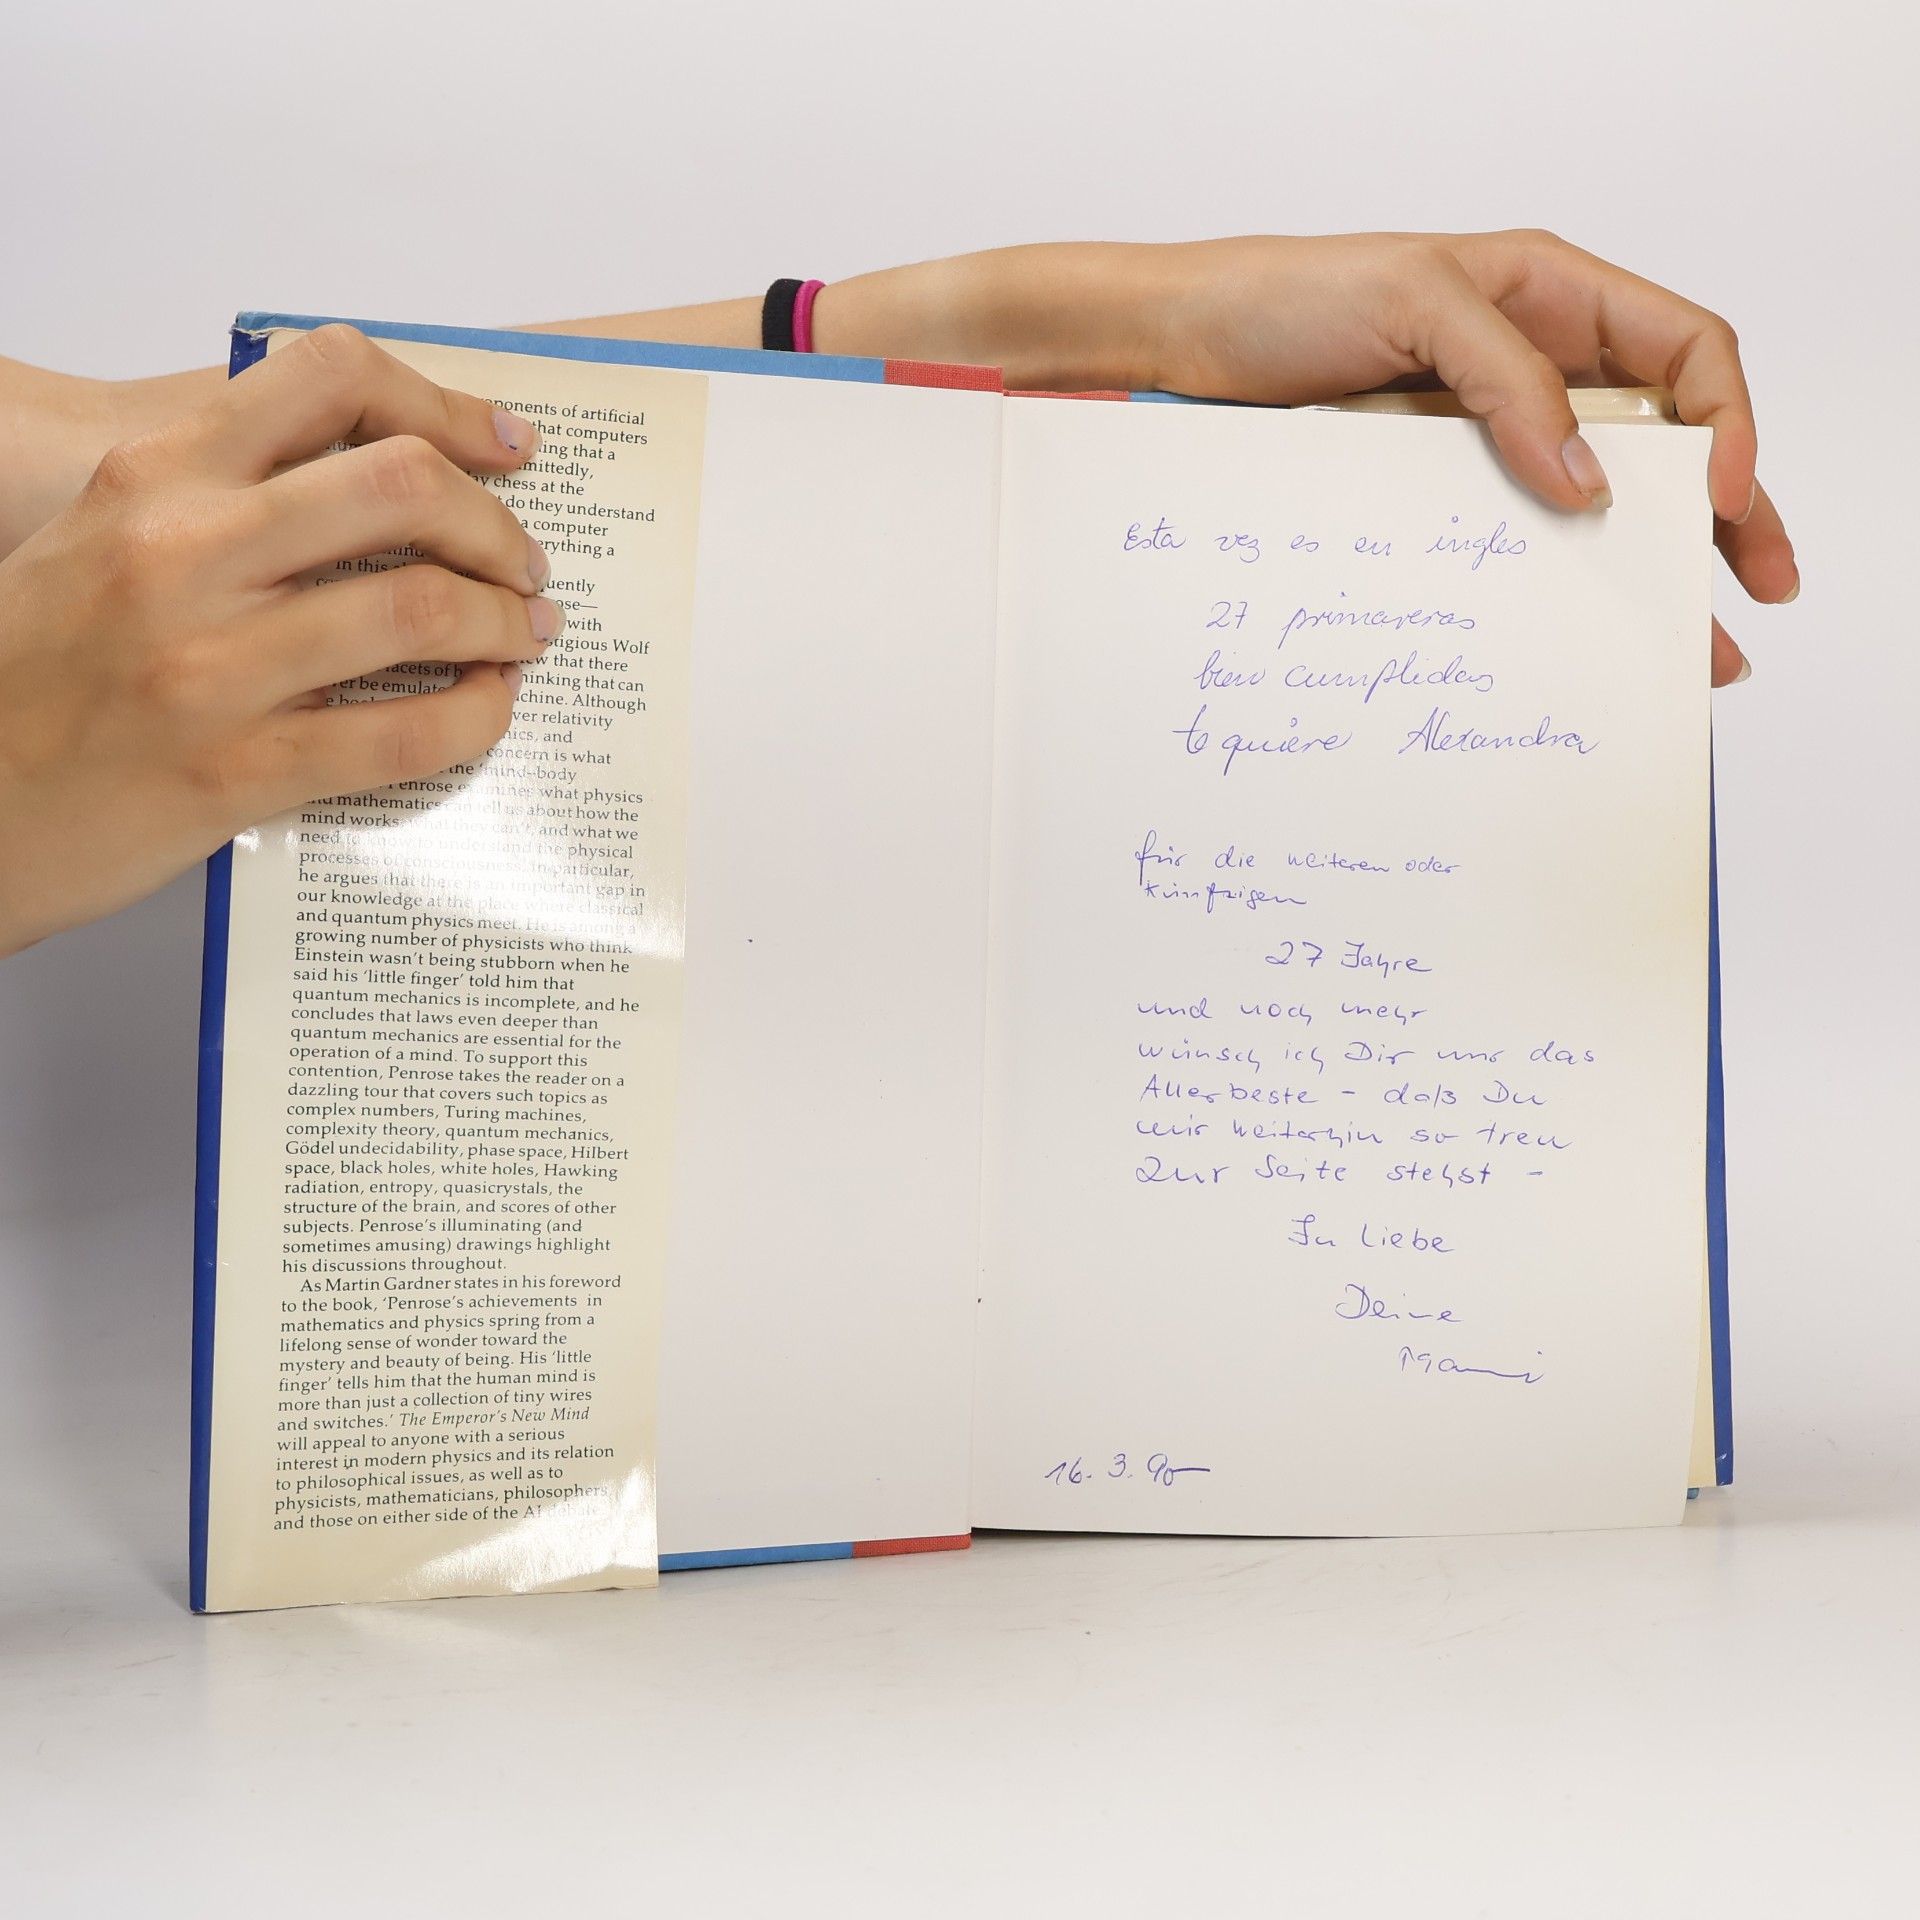 ponents of artificial
that computers
ing that a
mittedly,
chess at the
do they understand
a computer
erything a
in this
uently
ose—
with
stigious Wolf
w that there
facets of b
hinking that can
er be emulate
chine. Although
ver relativity
nics, and
concern is what
the 'mind–body
Penrose examines what physics
and mathematics can tell us about how the
mind works, what they can't, and what we
need to know to understand the physical
processes of consciousness. In particular,
he argues that there is an important gap in
our knowledge at the place where classical
and quantum physics meet. He is among a
growing number of physicists who think
Einstein wasn't being stubborn when he
said his 'little finger' told him that
quantum mechanics is incomplete, and he
concludes that laws even deeper than
quantum mechanics are essential for the
operation of a mind. To support this
contention, Penrose takes the reader on a
dazzling tour that covers such topics as
complex numbers, Turing machines,
complexity theory, quantum mechanics,
Gödel undecidability, phase space, Hilbert
space, black holes, white holes, Hawking
radiation, entropy, quasicrystals, the
structure of the brain, and scores of other
subjects. Penrose's illuminating (and
sometimes amusing) drawings highlight
his discussions throughout.
As Martin Gardner states in his foreword
to the book, 'Penrose's achievements in
mathematics and physics spring from a
lifelong sense of wonder toward the
mystery and beauty of being. His 'little
finger' tells him that the human mind is
more than just a collection of tiny wires
and switches.' The Emperor's New Mind
will appeal to anyone with a serious
interest in modern physics and its relation
to philosophical issues, as well as to
physicists, mathematicians, philosophers
and those on either side of the AI debate.
Esta vez es en ingles
27 primaveras
bien cumplidas
te quiere Alexandra
für die weiteren oder
künftigen
27 Jahre
und noch mehr
wünsch ich Dir nur das
Allerbeste - daß Du
mir weiterhin so treu
zur Seite stehst -
In Liebe
Deine
Mami
16. 3. 90